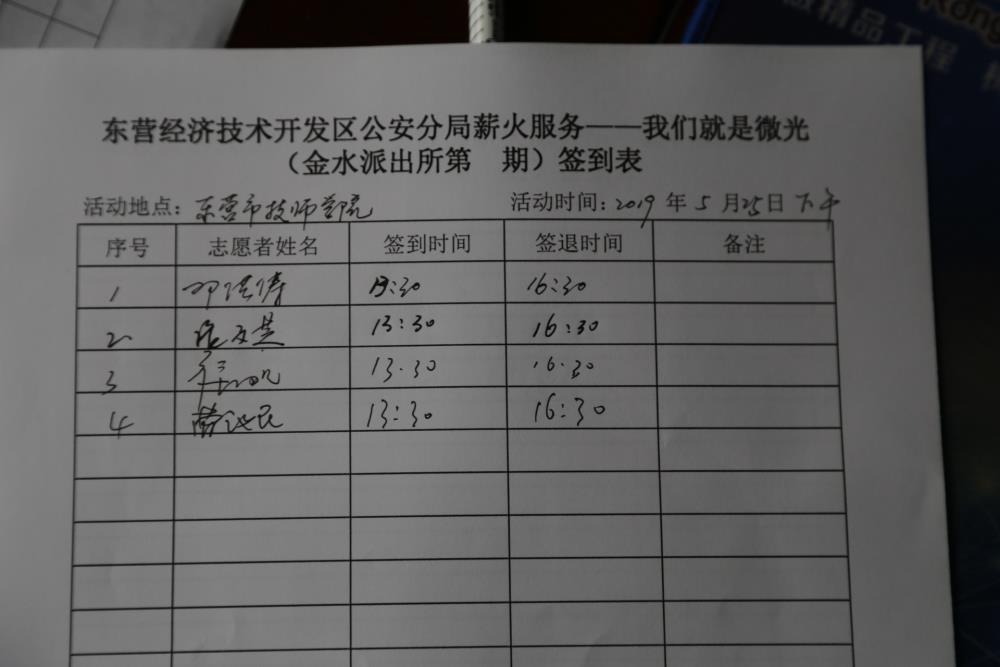 精品工程
东营经济技术开发区公安分局薪火服务——我们就是微光
（金水派出所第 期）签到表
活动地点：东营市技师学院 活动时间：2019年5月25日下午
序号 志愿者姓名 签到时间 签退时间 备注
1 邓洪涛 13:30 16:30
2 13:30 16:30
3 13.30 16.30
4 13:30 16:30